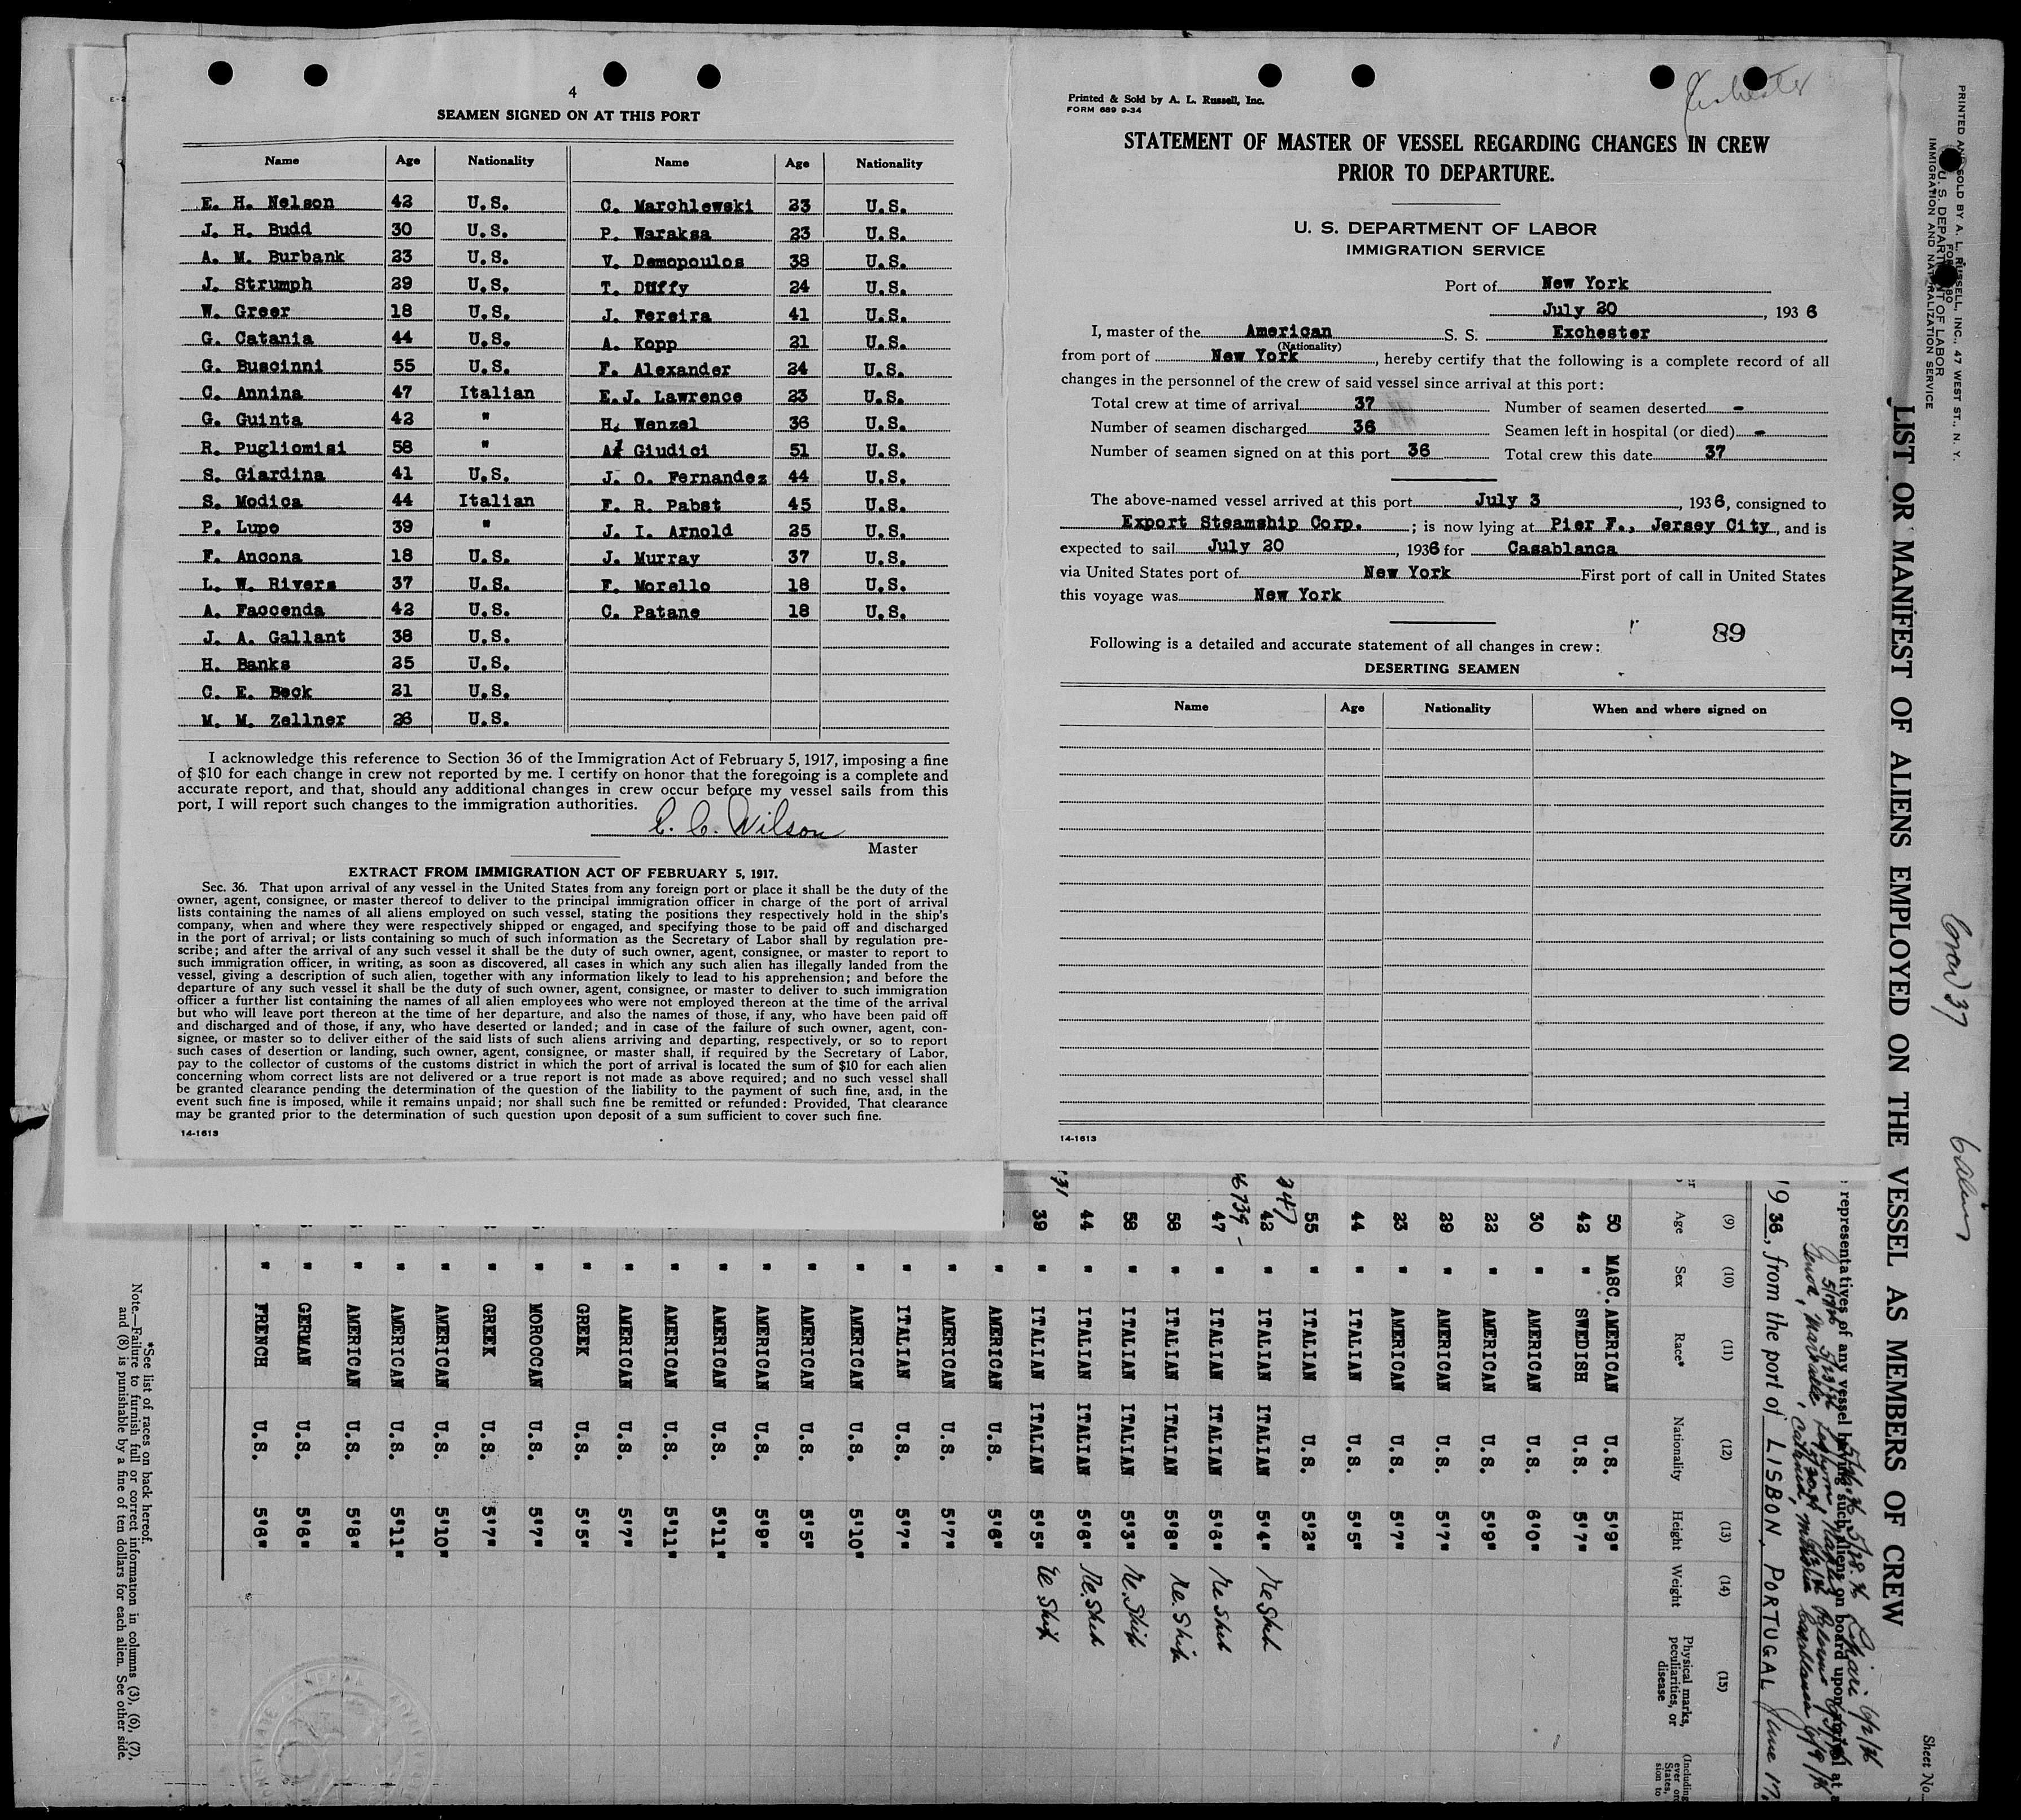 4
SEAMEN SIGNED ON AT THIS PORT
Name Age Nationality Name Age Nationality
E. H. Nelson 42 U.S. C. Marchlewski 23 U.S.
J. H. Budd 30 U.S. P. Waraksa 23 U.S.
A. M. Burbank 23 U.S. V. Demopoulos 38 U.S.
J. Strumph 29 U.S. T. Duffy 24 U.S.
W. Greer 18 U.S. J. Fereira 41 U.S.
G. Catania 44 U.S. A. Kopp 21 U.S.
G. Buscinni 55 U.S. F. Alexander 24 U.S.
C. Annina 47 Italian E.J. Lawrence 23 U.S.
G. Guinta 42 " H. Wenzel 36 U.S.
R. Pugliomisi 58 " A. Giudici 51 U.S.
S. Giardina 41 U.S. J. O. Fernandez 44 U.S.
S. Modica 44 Italian F. R. Pabst 45 U.S.
P. Lupo 39 " J. I. Arnold 25 U.S.
F. Ancona 18 U.S. J. Murray 37 U.S.
L. W. Rivers 37 U.S. F. Morello 18 U.S.
A. Faccenda 42 U.S. C. Patane 18 U.S.
J. A. Gallant 38 U.S.
H. Banks 25 U.S.
C. E. Beck 21 U.S.
M. M. Zellner 26 U.S.
I acknowledge this reference to Section 36 of the Immigration Act of February 5, 1917, imposing a fine
of $10 for each change in crew not reported by me. I certify on honor that the foregoing is a complete and
accurate report, and that, should any additional changes in crew occur before my vessel sails from this
port, I will report such changes to the immigration authorities.
C. C. Wilson
Master
EXTRACT FROM IMMIGRATION ACT OF FEBRUARY 5, 1917.
Sec. 36. That upon arrival of any vessel in the United States from any foreign port or place it shall be the duty of the
owner, agent, consignee, or master thereof to deliver to the principal immigration officer in charge of the port of arrival
lists containing the names of all aliens employed on such vessel, stating the positions they respectively hold in the ship's
company, when and where they were respectively shipped or engaged, and specifying those to be paid off and discharged
in the port of arrival; or lists containing so much of such information as the Secretary of Labor shall by regulation pre-
scribe; and after the arrival of any such vessel it shall be the duty of such owner, agent, consignee, or master to report to
such immigration officer, in writing, as soon as discovered, all cases in which any such alien has illegally landed from the
vessel, giving a description of such alien, together with any information likely to lead to his apprehension; and before the
departure of any such vessel it shall be the duty of such owner, agent, consignee, or master to deliver to such immigration
officer a further list containing the names of all alien employees who were not employed thereon at the time of the arrival
but who will leave port thereon at the time of her departure, and also the names of those, if any, who have been paid off
and discharged and of those, if any, who have deserted or landed; and in case of the failure of such owner, agent, con-
signee, or master so to deliver either of the said lists of such aliens arriving and departing, respectively, or so to report
such cases of desertion or landing, such owner, agent, consignee, or master shall, if required by the Secretary of Labor,
pay to the collector of customs of the customs district in which the port of arrival is located the sum of $10 for each alien
concerning whom correct lists are not delivered or a true report is not made as above required; and no such vessel shall
be granted clearance pending the determination of the question of the liability to the payment of such fine, and, in the
event such fine is imposed, while it remains unpaid; nor shall such fine be remitted or refunded: Provided, That clearance
may be granted prior to the determination of such question upon deposit of a sum sufficient to cover such fine.
14-1613
Exchester
Printed & Sold by A. L. Russell, Inc.
FORM 689 9-34
STATEMENT OF MASTER OF VESSEL REGARDING CHANGES IN CREW
PRIOR TO DEPARTURE.
U. S. DEPARTMENT OF LABOR
IMMIGRATION SERVICE
Port of New York
July 20, 1936
I, master of the American S. S. Exchester
(Nationality)
from port of New York, hereby certify that the following is a complete record of all
changes in the personnel of the crew of said vessel since arrival at this port:
Total crew at time of arrival 37 Number of seamen deserted -
Number of seamen discharged 36 Seamen left in hospital (or died) -
Number of seamen signed on at this port 36 Total crew this date 37
The above-named vessel arrived at this port July 3, 1936, consigned to
Export Steamship Corp.; is now lying at Pier F., Jersey City, and is
expected to sail July 20, 1936 for Casablanca
via United States port of New York First port of call in United States
this voyage was New York
89
Following is a detailed and accurate statement of all changes in crew:
DESERTING SEAMEN
Name Age Nationality When and where signed on
14-1613
PRINTED AND SOLD BY A. L. RUSSELL, INC., 47 WEST ST., N. Y.
U. S. DEPARTMENT OF LABOR
IMMIGRATION AND NATURALIZATION SERVICE
Sheet No.
Crew 37
6 aliens
LIST OR MANIFEST OF ALIENS EMPLOYED ON THE VESSEL AS MEMBERS OF CREW
representatives of any vessel having such aliens on board upon arrival at
1936, from the port of LISBON, PORTUGAL June 17,
(9) (10) (11) (12) (13) (14) (15)
Age Sex Race* Nationality Height Weight Physical marks, peculiarities, or disease
50 MASC. AMERICAN U.S. 5'9"
42 " SWEDISH U.S. 5'7"
30 " AMERICAN U.S. 6'0"
22 " AMERICAN U.S. 5'9"
29 " AMERICAN U.S. 5'7"
23 " AMERICAN U.S. 5'7"
44 " ITALIAN U.S. 5'5"
55 " ITALIAN U.S. 5'2"
42 " ITALIAN ITALIAN 5'4" Re Ship
47 " ITALIAN ITALIAN 5'6" Re Ship
58 " ITALIAN ITALIAN 5'8" Re. Ship
58 " ITALIAN ITALIAN 5'3" Re. Ship
44 " ITALIAN ITALIAN 5'6" Re. Ship
39 " ITALIAN ITALIAN 5'5" Re Ship
" AMERICAN U.S. 5'6"
" AMERICAN U.S. 5'7"
" ITALIAN U.S. 5'7"
" AMERICAN U.S. 5'10"
" AMERICAN U.S. 5'5"
" AMERICAN U.S. 5'9"
" AMERICAN U.S. 5'11"
" AMERICAN U.S. 5'11"
" AMERICAN U.S. 5'7"
" GREEK U.S. 5'5"
" MOROCCAN U.S. 5'7"
" GREEK U.S. 5'7"
" AMERICAN U.S. 5'10"
" AMERICAN U.S. 5'11"
" AMERICAN U.S. 5'8"
" GERMAN U.S. 5'6"
" FRENCH U.S. 5'6"
*See list of races on back hereof.
Note.—Failure to furnish full or correct information in columns (3), (6), (7),
and (8) is punishable by a fine of ten dollars for each alien. See other side.